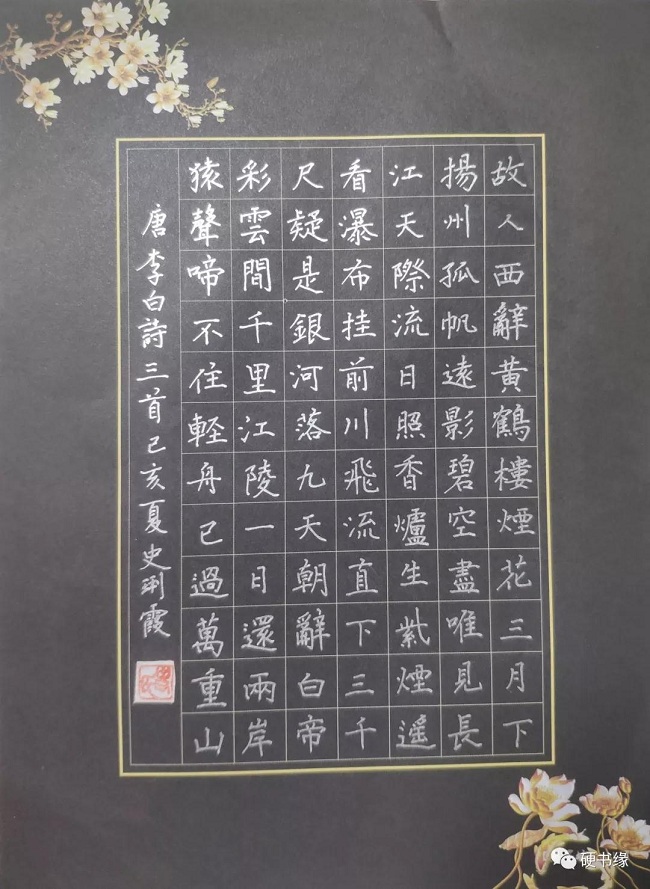 故人西辭黃鶴樓煙花三月下
揚州孤帆遠影碧空盡唯見長
江天際流日照香爐生紫煙遥
看瀑布挂前川飛流直下三千
尺疑是銀河落九天朝辭白帝
彩雲間千里江陵一日還兩岸
猿聲啼不住輕舟已過萬重山
唐李白詩三首己亥夏史琍霞
硬书缘